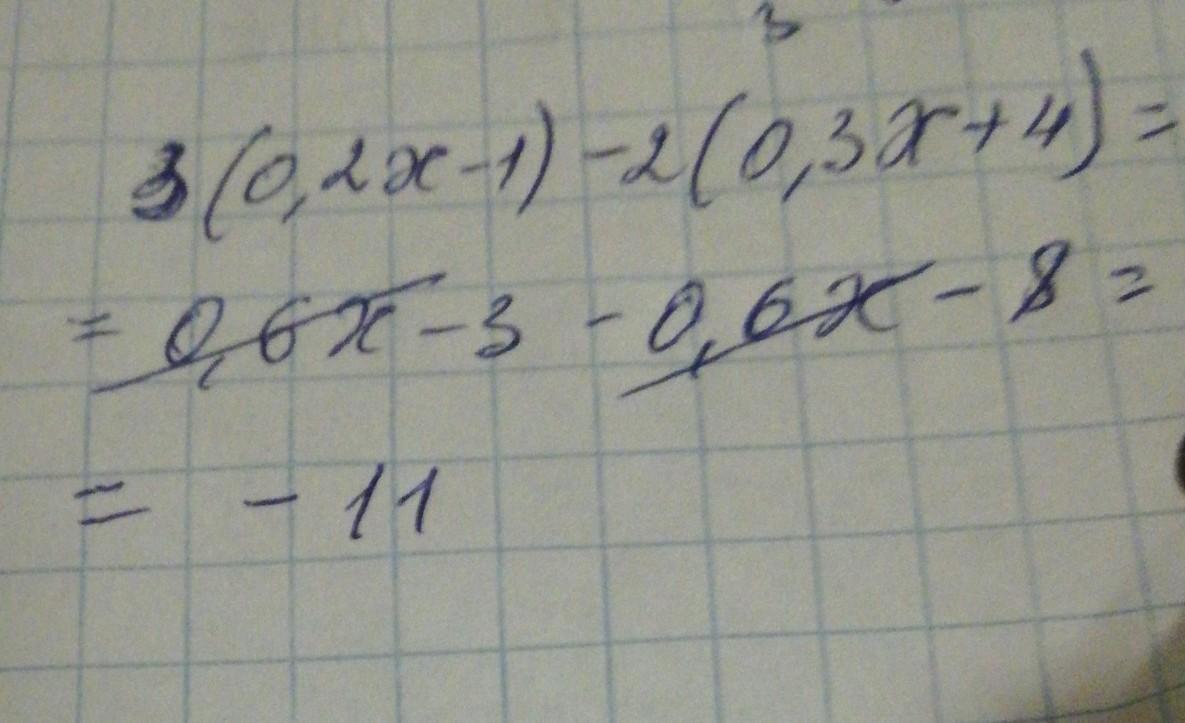 3
3(0,2x-1)-2(0,3x+4)=
=0,6x-3-0,6x-8=
=-11